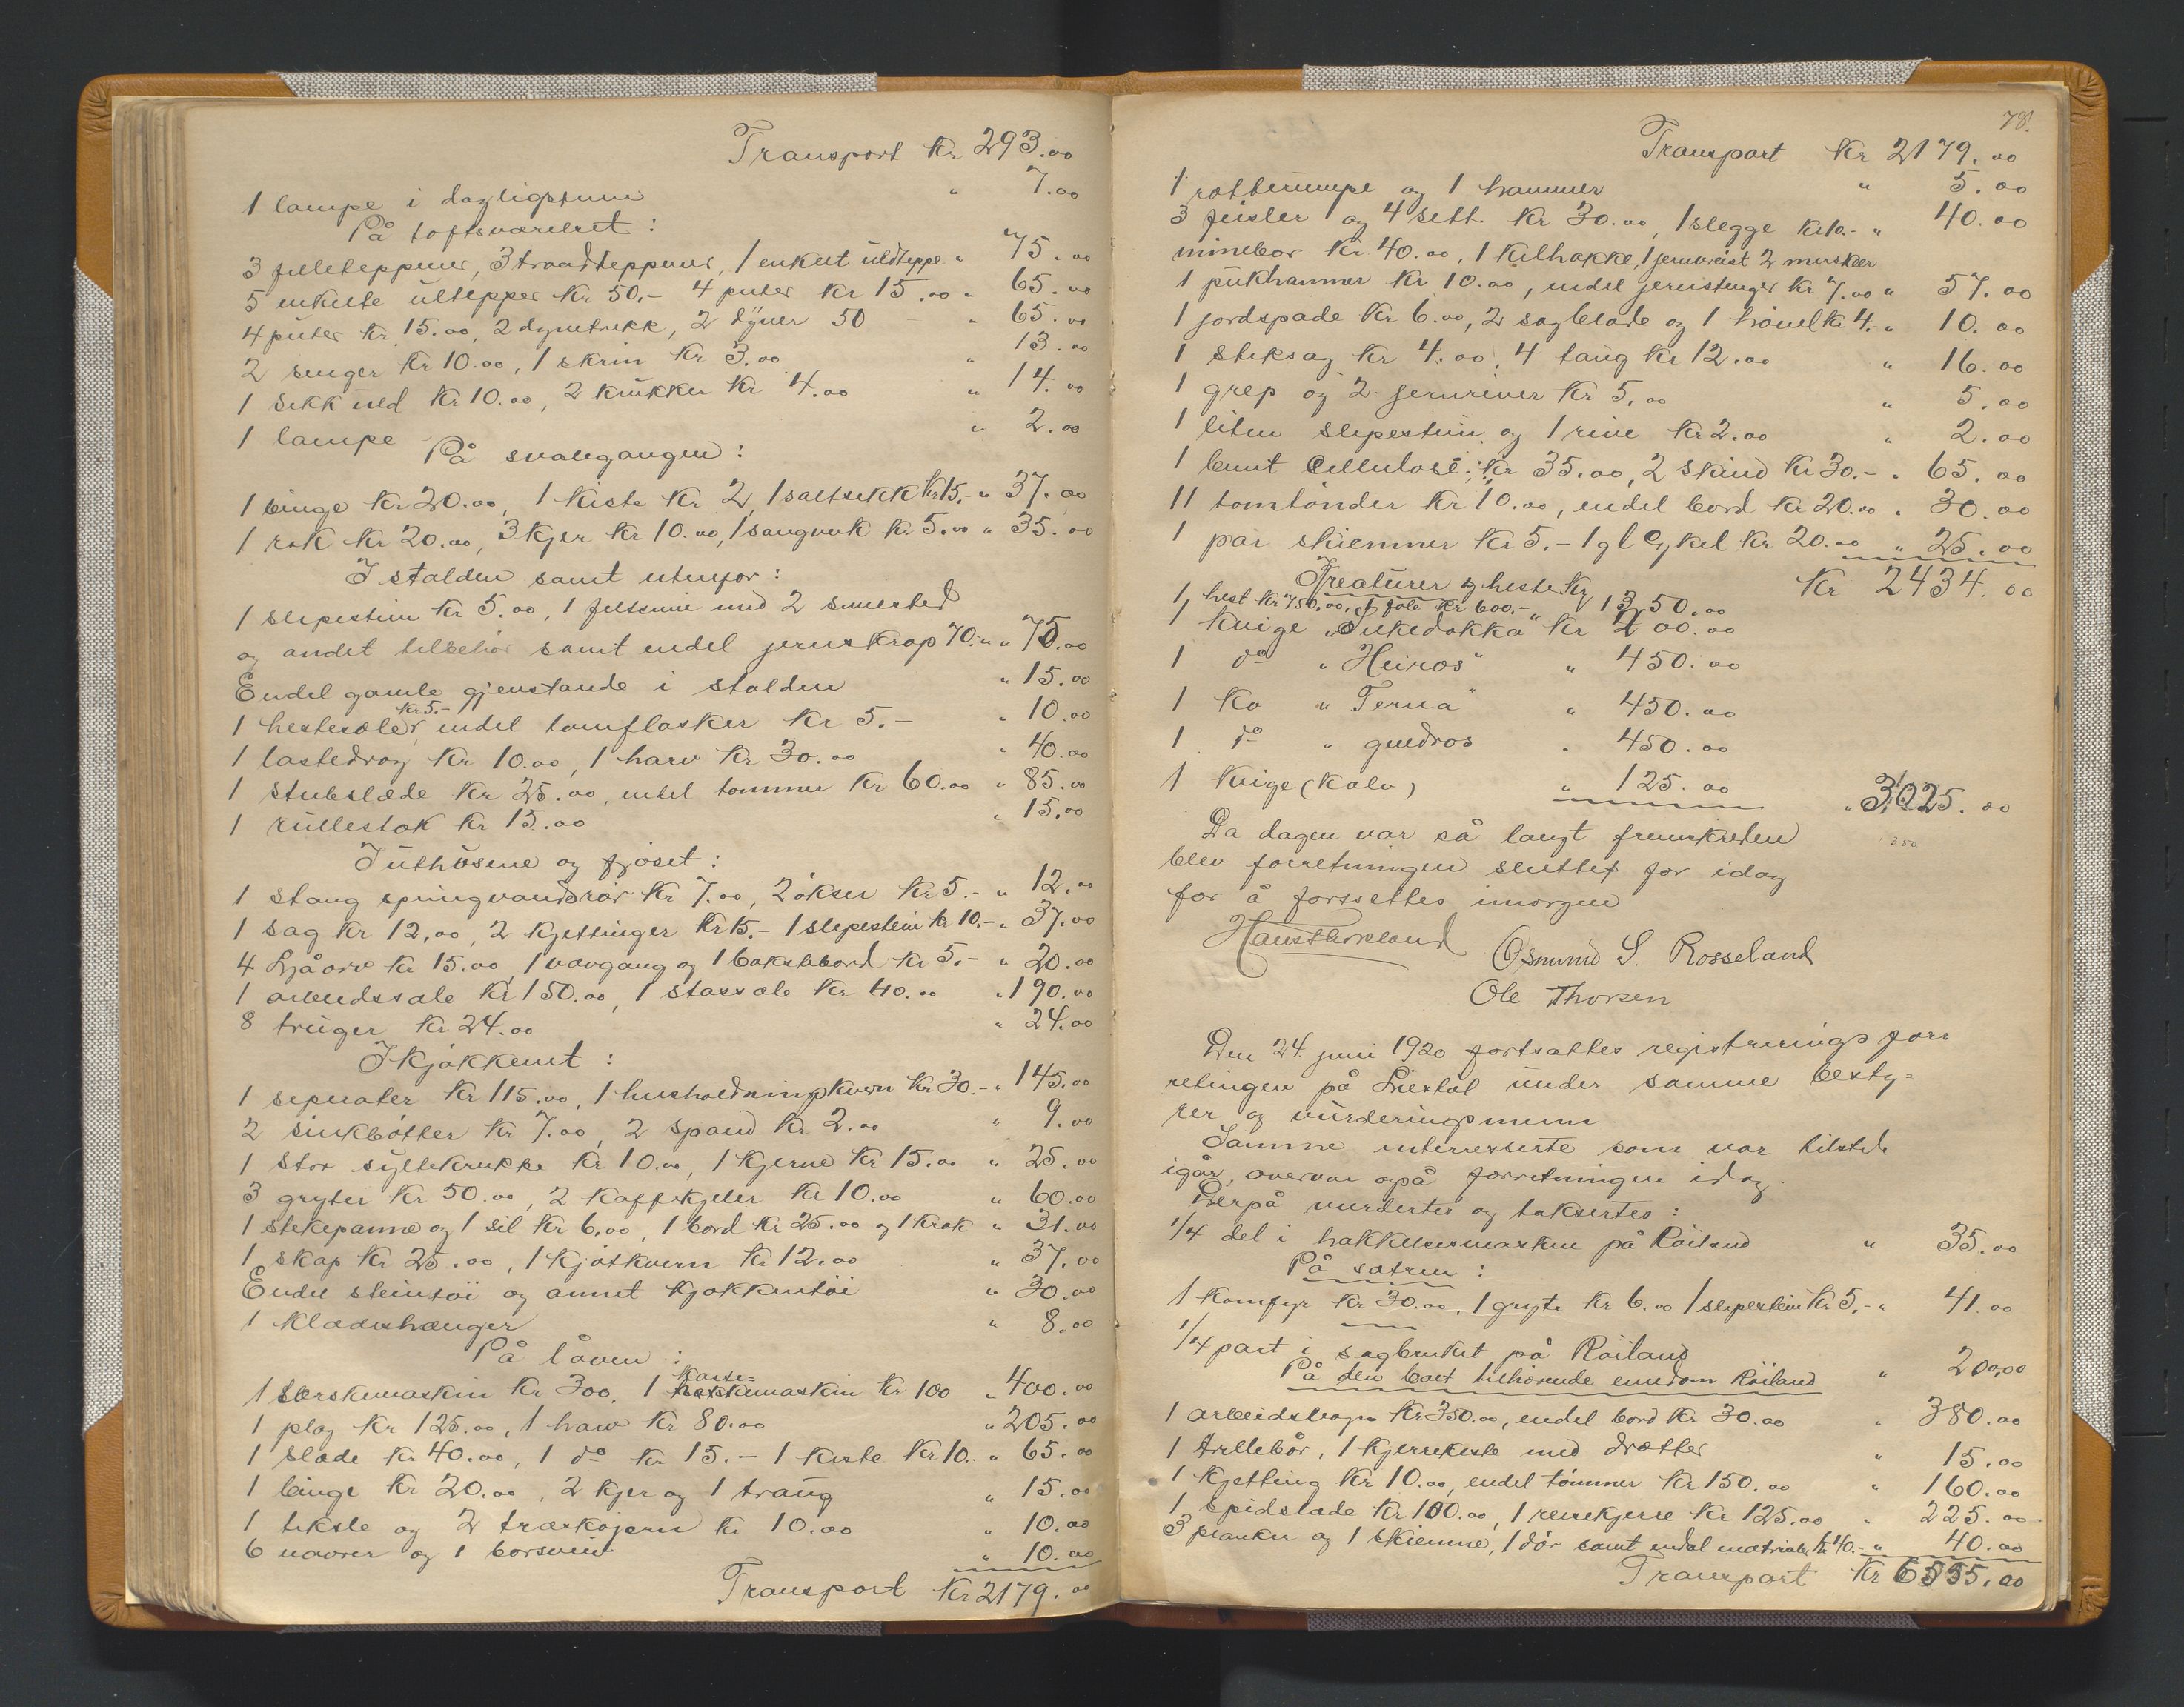 Transport Kr 293.00
1 lampe i dagligstuen " 7.00
På loftsværelset :
3 felleteppener, 3 traadteppener, 1 enkelt uldteppe " 75.00
5 enkelte ultepper Kr 50.- 4 puter Kr 15.00 " 65.00
4 puter Kr 15.00, 2 dynetrekk, 2 dyner 50 - " 65.00
2 senger Kr 10.00, 1 skrin Kr 3.00 " 13.00
1 sekk uld Kr 10.00, 2 krukker Kr 4.00 " 14.00
1 lampe " 2.00
På svalegangen :
1 binge Kr 20.00, 1 kiste Kr 2, 1 saltsekk Kr 15.- " 37.00
1 rok Kr 20.00, 3 kjer Kr 10.00, 1 Kr 5.00 " 35.00
I stalden samt utenfor :
1 slepestein Kr 5.00, 1 feltsmie med 2 smiested
og andet tilbehør samt endel jernskrap 70.- " 75.00
Endel gamle gjenstande i stalden " 15.00
1 hestesæler Kr 5.- endel tomflasker Kr 5.- " 10.00
1 lastedrog Kr 10.00, 1 harv Kr 30.00 " 40.00
1 stubslæde Kr 25.00, endel tømmer Kr 60.00 " 85.00
1 rullestok Kr 15.00 " 15.00
I uthusene og fjøset :
1 stang springvandsrør Kr 7.00, 2 økser Kr 5.- " 12.00
1 sag Kr 12.00, 2 kjettinger Kr 15.- 1 slepestein Kr 10.- " 37.00
4 ljåorv Kr 15.00, 1 vævgang og 1 bakstebord Kr 5.- " 20.00
1 arbeidssæle Kr 150.00, 1 stassæle Kr 40.00 " 190.00
8 truger Kr 24.00 " 24.00
I kjøkkenet :
1 seperater Kr 115.00, 1 husholdningskvern Kr 30.- " 145.00
2 sinkbøtter Kr 7.00, 2 spand Kr 2.00 " 9.00
1 stor syltekrukke Kr 10.00, 1 kjerne Kr 15.00 " 25.00
3 gryter Kr 50.00, 2 kaffekjeler Kr 10.00 " 60.00
1 stekepanne og 1 sil Kr 6.00, 1 bord Kr 25.00 og 1 krak " 31.00
1 skap Kr 25.00, 1 kjøtkvern Kr 12.00 " 37.00
Endel steintøi og annet kjøkkentøi " 30.00
1 klædeshænger " 8.00
På låven :
1 tærskemaskin Kr 300, 1 kastemaskin Kr 100 " 400.00
1 plog Kr 125.00, 1 harv Kr 80.00 " 205.00
1 slæde Kr 40.00, 1 do Kr 15.- 1 kiste Kr 10.- " 65.00
1 binge Kr 20.00, 2 kjer og 1 traug " 15.00
1 teksle og 2 Kr 10.00 " 10.00
6 navrer og 1 borsvin " 10.00
Transport Kr 2179.00
78.
Transport Kr 2179.00
1 rotterumpe og 1 hammer " 5.00
3 feisler og 4 sett Kr 30.00, 1 slegge Kr 10.- " 40.00
minebor Kr 40.00, 1 kilhakke, 1 2
1 pukhammer Kr 10.00, endel jernstenger Kr 7.00 " 57.00
1 jordspade Kr 6.00, 2 sagblade og 1 høvel Kr 4.- " 10.00
1 stiksag Kr 4.00, 4 tang Kr 12.00 " 16.00
1 grep og 2 jernriver Kr 5.00 " 5.00
1 liten slepestein og 1 rive Kr 2.00 " 2.00
1 bunt Cellulose Kr 35.00, 2 skind Kr 30.- " 65.00
11 tomtønder Kr 10.00, endel bord Kr 20.00 " 30.00
1 par skiemner Kr 5.- 1 gl Cykel Kr 20.00 " 25.00
Kreaturer og heste Kr Kr 2434.00
1 hest Kr 750.00, 1 fole Kr 600.- 1350.00
1 kvige "Sukedokka" Kr 200.00
1 do " Heiros" " 450.00
1 Ko " Terna " 450.00
1 do " guldros " 450.00
1 Kvige (Kalv) " 125.00 " 3025.00
Da dagen var så langt fremskreden
blev forretningen sluttet for idag
for å forssettes imorgen
Hans Thorsland Osmund S. Rosseland
Ole Thorsen
Den 24. juni 1920 fortsattes registrerings forr
retingen på Liestøl under samme besty=
rer og vurderingsmenn.
Samme interreserte som var tilstede
igår, overvar også forretningen idag.
Derpå vurdertes og taksertes :
1/4 del i hakkelsesmaskin på Röiland " 35.00
På sætren :
1 komfyr Kr 30.00, 1 gryte Kr 6.00 1 slepestein Kr 5.- " 41.00
1/4 part i sagbruket på Röiland " 200.00
På den boet tilhørende eiendom Röiland
1 arbeidsvogn Kr 350.00, endel bord Kr 30.00 " 380.00
1 trillebår, 1 kjerrekiste med drætter " 15.00
1 kjetting Kr 10.00, endel tømmer Kr 150.00 " 160.00
1 spidslæde Kr 100.00, 1 reisekjerre Kr 125.00 " 225.00
3 planker og 1 skiemne, 1 dør samt endel materialer Kr 40.- " 40.00
Transport Kr 6555.00